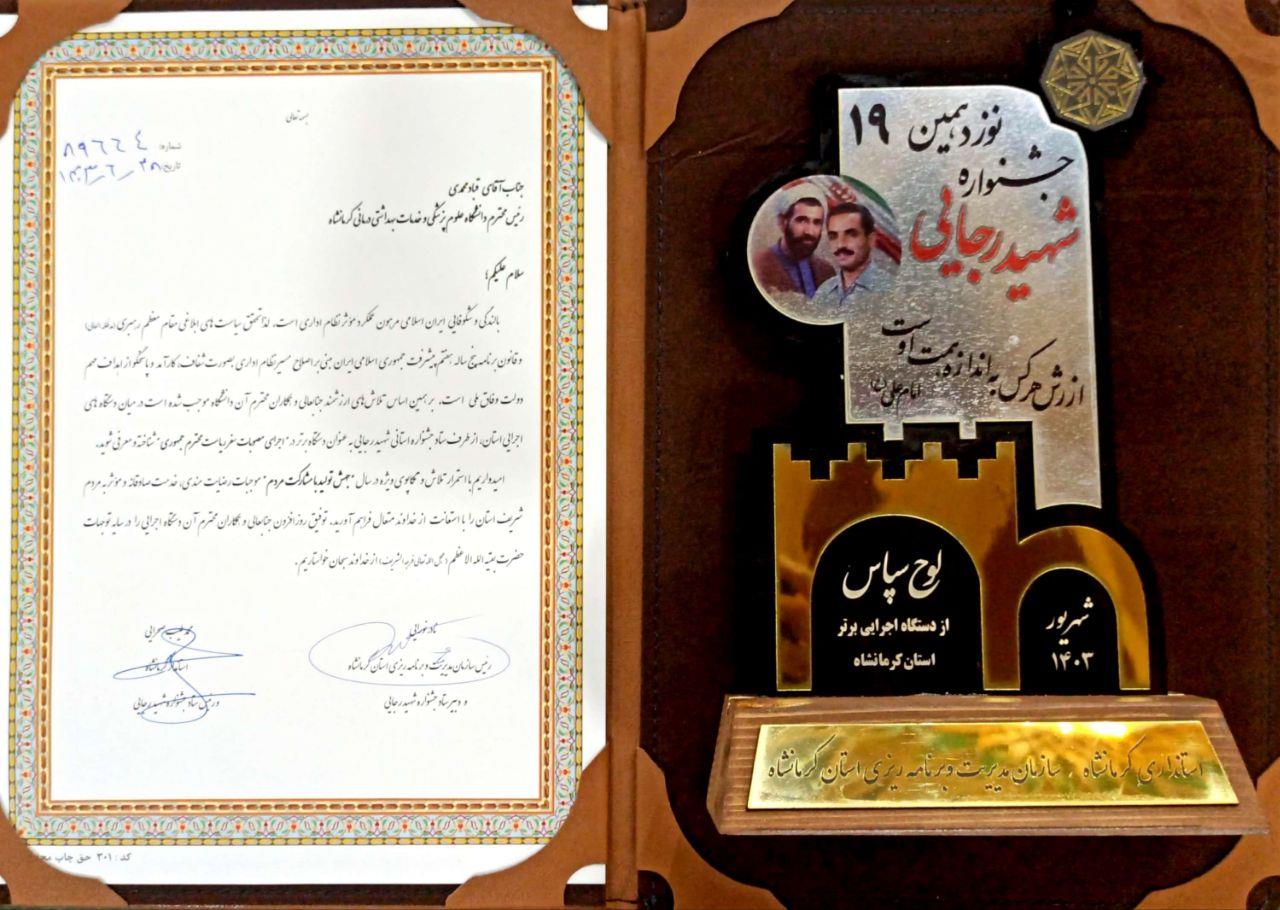 بسمه تعالی
شماره: ۸۹۶۶۴
تاریخ: ۱۴۰۳/۶/۲۸
جناب آقای قبادمحمدی
رئیس محترم دانشگاه علوم پزشکی و خدمات بهداشتی درمانی کرمانشاه
سلام علیکم؛
بالندگی و شکوفایی ایران اسلامی مرهون عملکرد مؤثر نظام اداری است. لذا تحقق سیاست های ابلاغی مقام معظم رهبری (مدظله العالی)
و قانون برنامه پنج ساله هفتم پیشرفت جمهوری اسلامی ایران مبنی بر اصلاح مسیر نظام اداری بصورت شفاف، کارآمد و پاسخگو از اهداف مهم
دولت وفاق ملی است. بر همین اساس تلاش های ارزشمند جنابعالی و همکاران محترم آن دانشگاه موجب شده است در میان دستگاه های
اجرایی استان، از طرف ستاد جشنواره استانی شهید رجایی به عنوان دستگاه برتر در "اجرای مصوبات سفر ریاست محترم جمهوری" شناخته و معرفی شوید.
امیدواریم با استمرار تلاش و تکاپوی ویژه در سال "جهش تولید با مشارکت مردم" موجبات رضایت مندی، خدمت صادقانه و مؤثر به مردم
شریف استان را با استعانت از خداوند متعال فراهم آورید. توفیق روزافزون جنابعالی و همکاران محترم آن دستگاه اجرایی را در سایه توجهات
حضرت بقیه الله الاعظم (عجل الله تعالی فرجه الشریف) از خداوند سبحان خواستاریم.
نادر نوروزی
رئیس سازمان مدیریت و برنامه ریزی استان کرمانشاه
و دبیر ستاد جشنواره شهید رجایی
استاندار کرمانشاه
و رئیس ستاد جشنواره شهید رجایی
کد: ۳۰۱ حق چاپ
۱۹ نوزدهمین
جشنواره
شهید رجایی
ارزش هرکس به اندازه همت اوست
امام علی (ع)
لوح سپاس
از دستگاه اجرایی برتر
استان کرمانشاه
شهریور
۱۴۰۳
استانداری کرمانشاه ، سازمان مدیریت و برنامه ریزی استان کرمانشاه